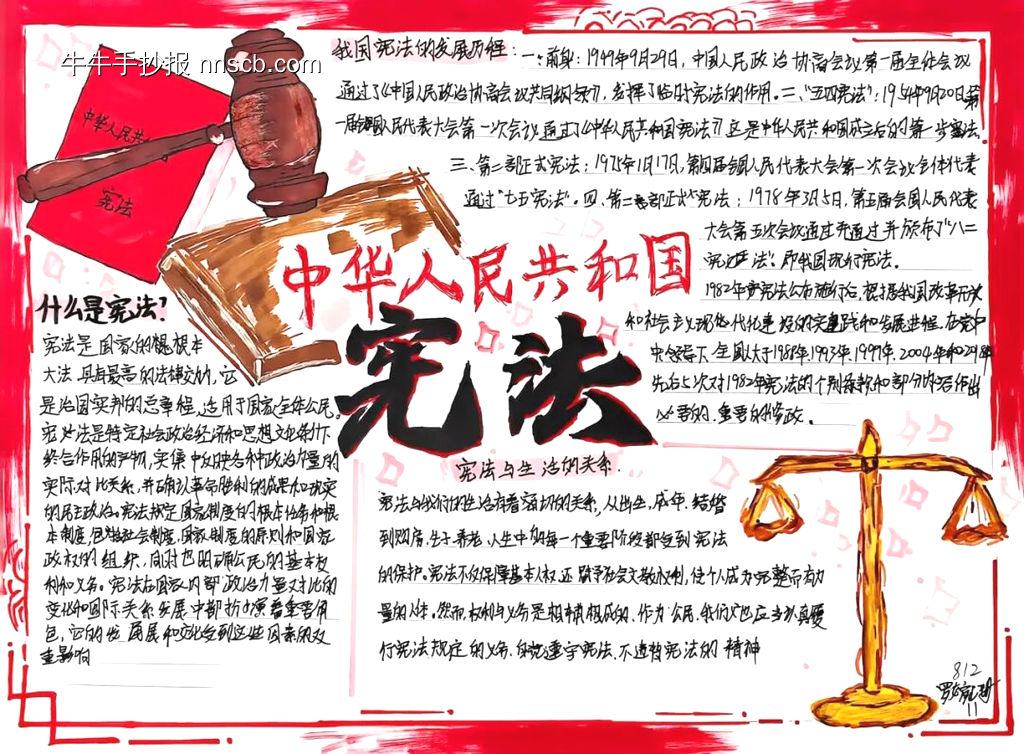 牛牛手抄报 nnscb.com
中华人民共
宪法
我国宪法的发展历程：一、前身：1949年9月29日，中国人民政治协商会议第一届全体会议
通过了《中国人民政治协商会议共同纲领》，发挥了临时宪法的作用。二、"五四宪法"：1954年9月20日第
一届全国人民代表大会第一次会议通过了《中华人民共和国宪法》这是中华人民共和国成立后的第一步宪法.
三、第二部正式宪法：1975年1月17日,第四届全国人民代表大会第一次会议全体代表
通过"七五宪法"。四、第三部正式宪法：1978年3月5日，第五届全国人民代表
大会第五次会议通过并通过并颁布了"八二
宪法"，即我国现行宪法。
1982年宪法公布施行后,根据我国改革开放
和社会主义现代化建设的实践和发展进程，在党中
央领导下,全国人大于1988年,1993年,1999年,2004年和
先后5次对1982年宪法的个别条款和部分内容作出
必要的、重要的修改。
中华人民共和国
宪法
什么是宪法？
宪法是国家的根本
大法，具有最高的法律效力，它
是治国安邦的总章程，适用于国家全体公民。
宪法是特定社会政治经济和思想文化条件下
综合作用的产物，实集中反映各种政治力量的
实际对比关系，并确认革命胜利的成果和现实
的民主政治。宪法规定国家制度的根本任务和根
本制度，社会制度、国家制度的原则和国家
政权的组织，同时也明确公民的基本权
利和义务。宪法在国家内部政治力量对比的
变化和国际关系发展中都扮演着重要角
色，它的发展和变化受到这些因素的双
重影响
宪法与生活的关系.
宪法与我们的生活有着密切的关系，从出生、成年、结婚
到购房、生子、养老，人生中的每一个重要阶段都受到宪法
的保护。宪法不仅保障基本人权，还赋予社会文教权利，使个人成为完整而有力
量的人生。然而，权利与义务是相辅相成的，作为公民，我们也应当认真履
行宪法规定的义务，自觉遵守宪法、不违背宪法的精神
812
11